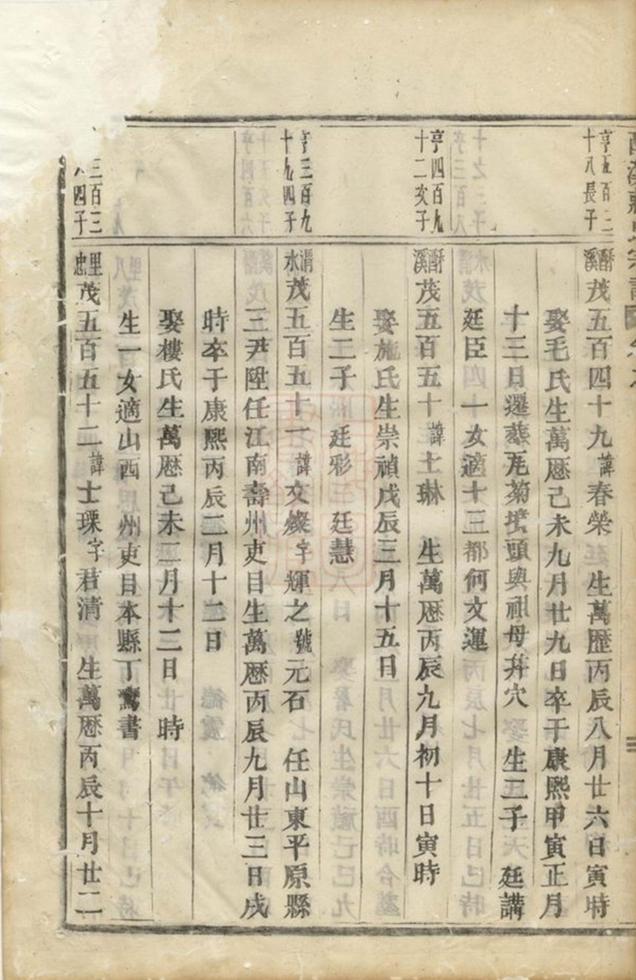 亨五百三
十八長子
酣溪茂五百四十九諱春榮 生萬歷丙辰八月廿六日寅時
娶毛氏生萬歷己未九月廿九日卒于康熙甲寅正月
十三日遷葬瓦菊塘頭與祖母并穴 生三子 廷講
廷臣 一女適十三都何文運
亨四百九
十二次子
酣溪茂五百五十諱士琳 生萬歷丙辰九月初十日寅時
娶施氏生崇禎戊辰三月十五日
生二子 廷彩 廷慧
亨三百九
十九四子
渭水茂五百五十一諱文燦字輝之號元石 任山東平原縣
三尹陞任江南壽州吏目生萬歷丙辰九月廿三日戌
時卒于康熙丙辰二月十二日
娶樓氏生萬歷己未二月十二日 時
生一女適山西 州吏目本縣丁 書
三百三
四子
里忠茂五百五十二諱士瑮字君清 生萬歷丙辰十月廿二